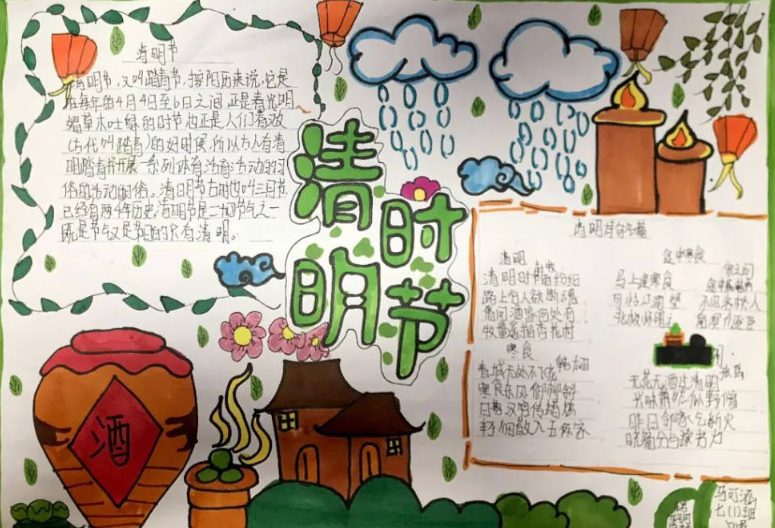 清明节
清明节，又叫踏青节，按阳历来说，它是
在每年的4月4日至6日之间，正是春光明
媚草木吐绿的时节也正是人们春游
(古代叫踏青)的好时候，所以古人有清
明踏青并开展一系列体育活动的习
俗。清明节古时也叫三月节
已经有两千年历史清明节是二十四节气之一
既是节气又是节日的只有清明。
清明时节
酒
清明
清明时节雨纷纷
路上行人欲断魂
借问酒家何处有
牧童遥指杏花村
寒食
春城无处不飞花
寒食东风御柳斜
日暮汉宫传蜡烛
轻烟散入五侯家
途中寒食
马上逢寒食
无花无酒过清明
兴味萧然似野僧
昨日邻家乞新火
晓窗分与读书灯
七(1)班